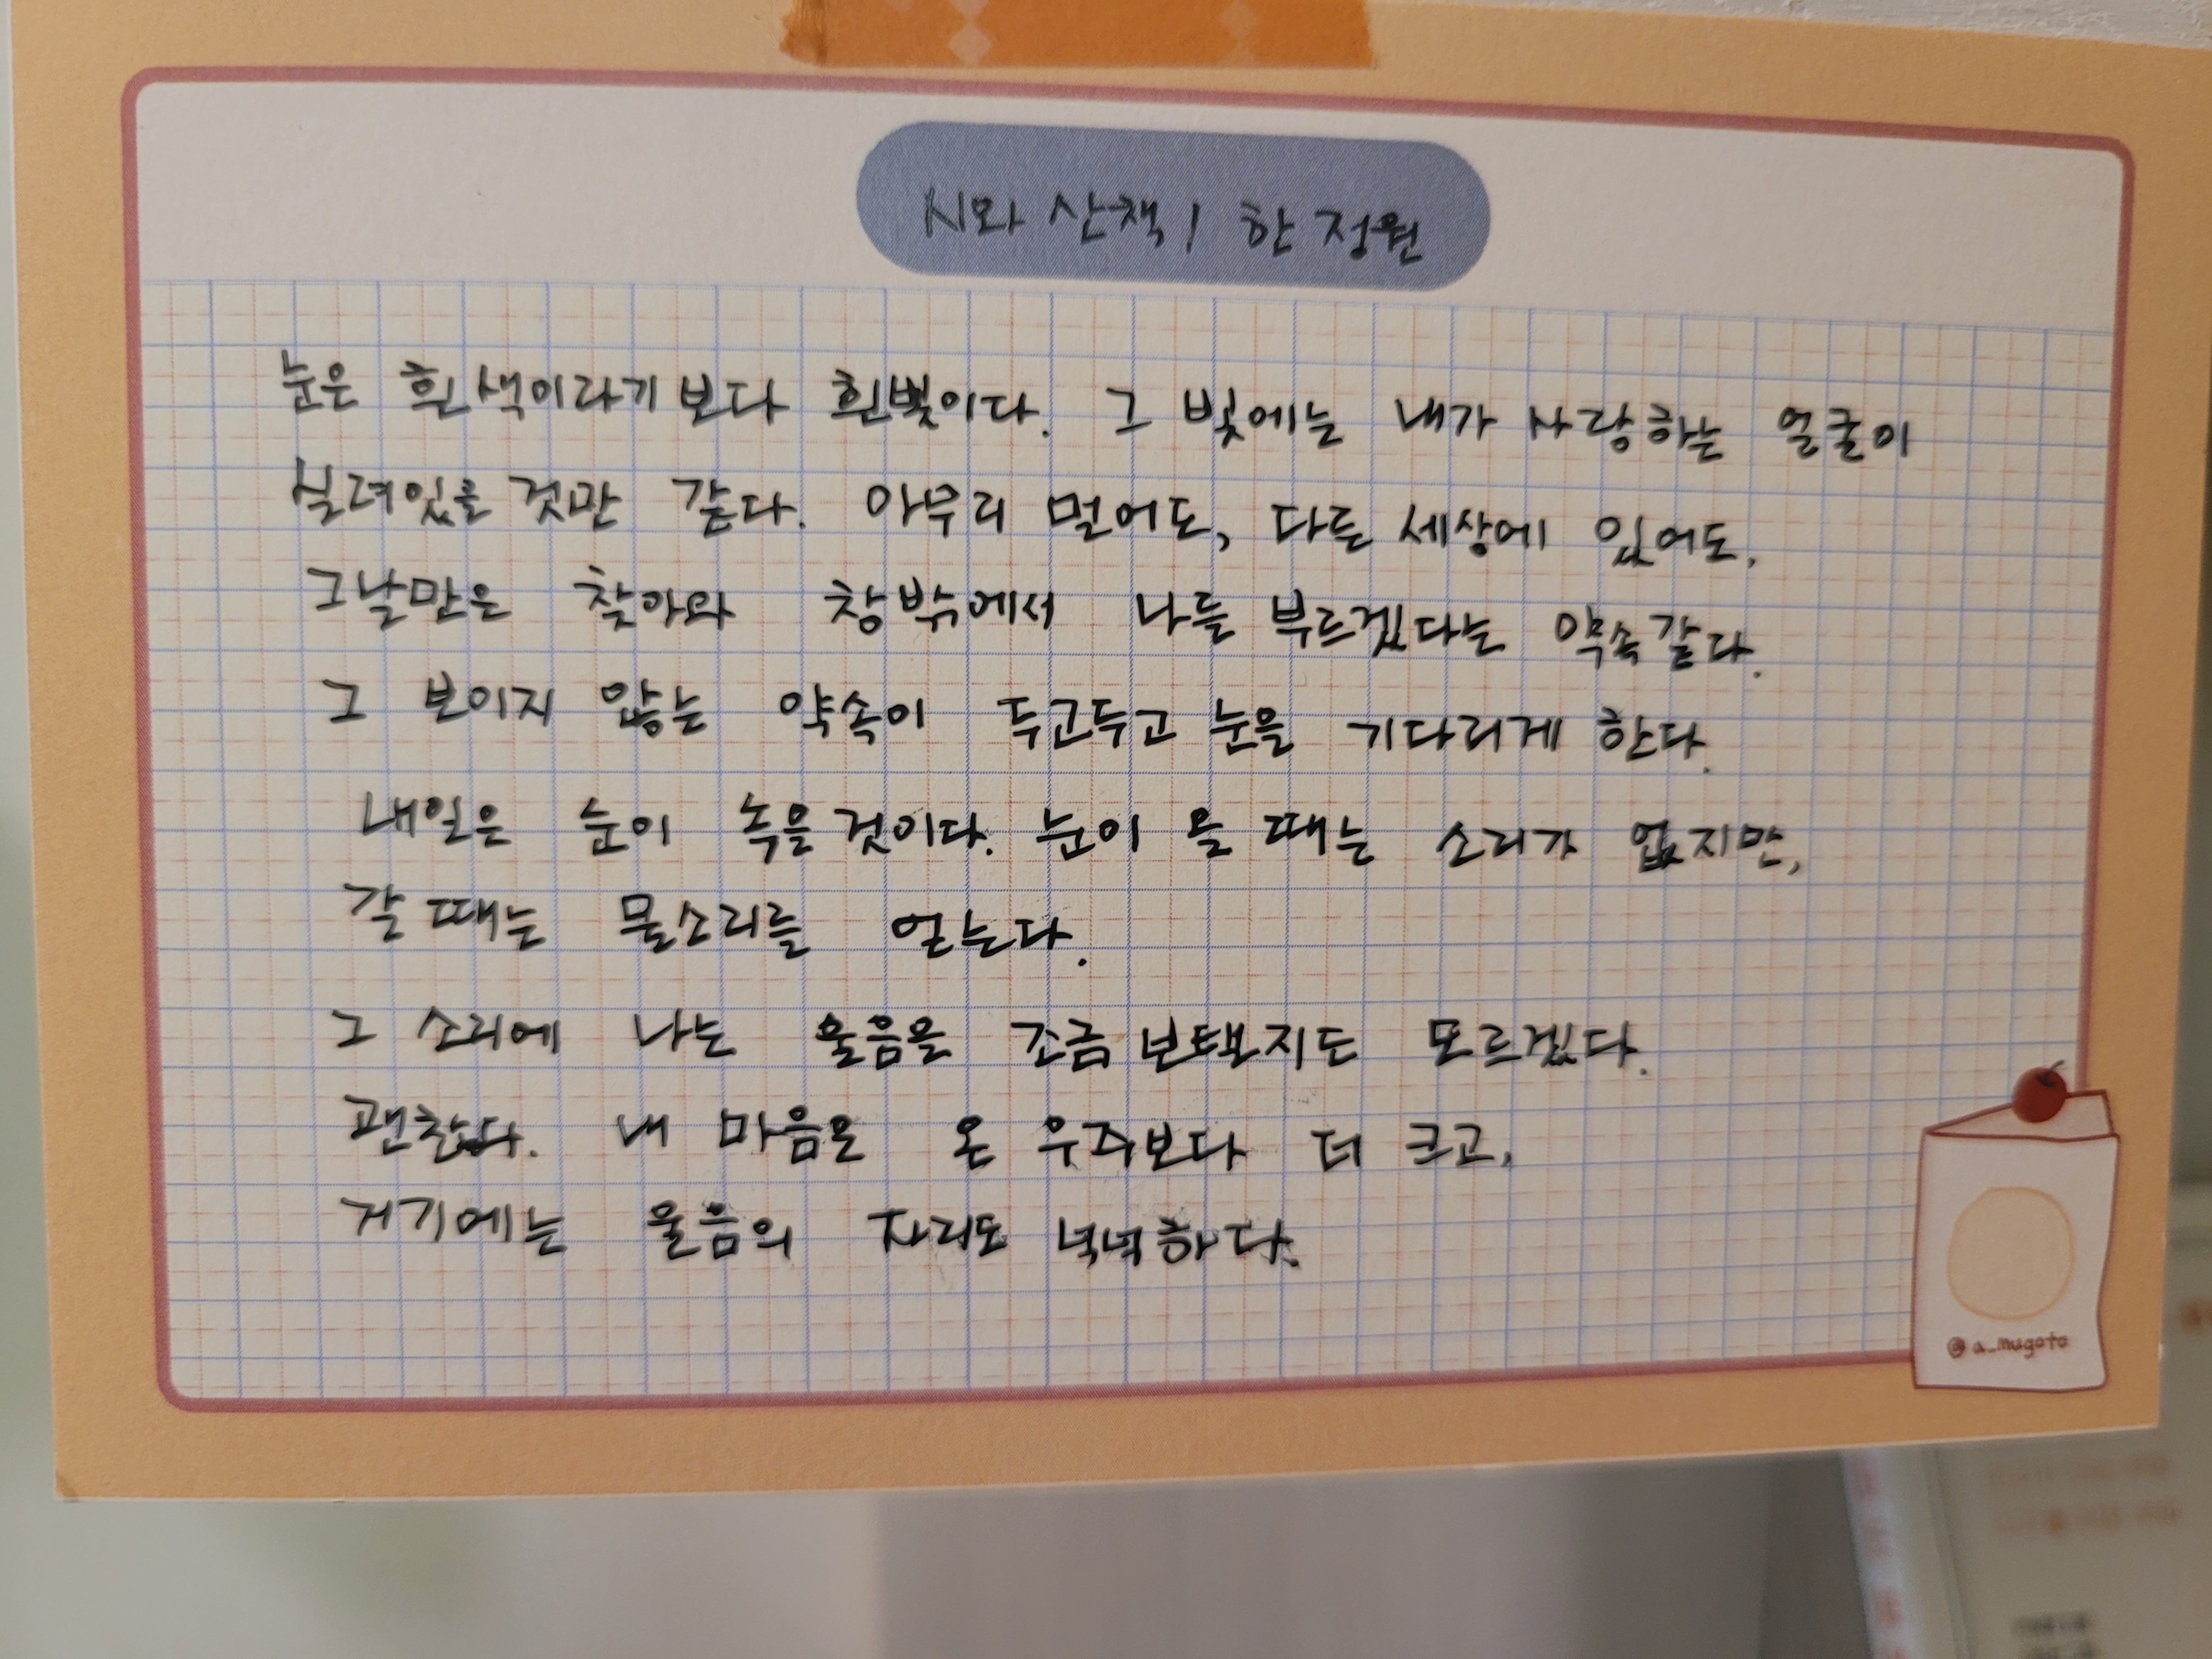 시와 산책 / 한정원
눈은 흰색이라기보다 흰빛이다. 그 빛에는 내가 사랑하는 얼굴이
실려있을 것만 같다. 아무리 멀어도, 다른 세상에 있어도,
그날만은 찾아와 창밖에서 나를 부르겠다는 약속같다.
그 보이지 않는 약속이 두고두고 눈을 기다리게 한다.
내일은 눈이 녹을 것이다. 눈이 올 때는 소리가 없지만,
갈 때는 물소리를 얻는다.
그 소리에 나는 울음을 조금 보탤지도 모르겠다.
괜찮다. 내 마음은 온 우주보다 더 크고,
거기에는 울음의 자리도 넉넉하다.
@a_mugoto